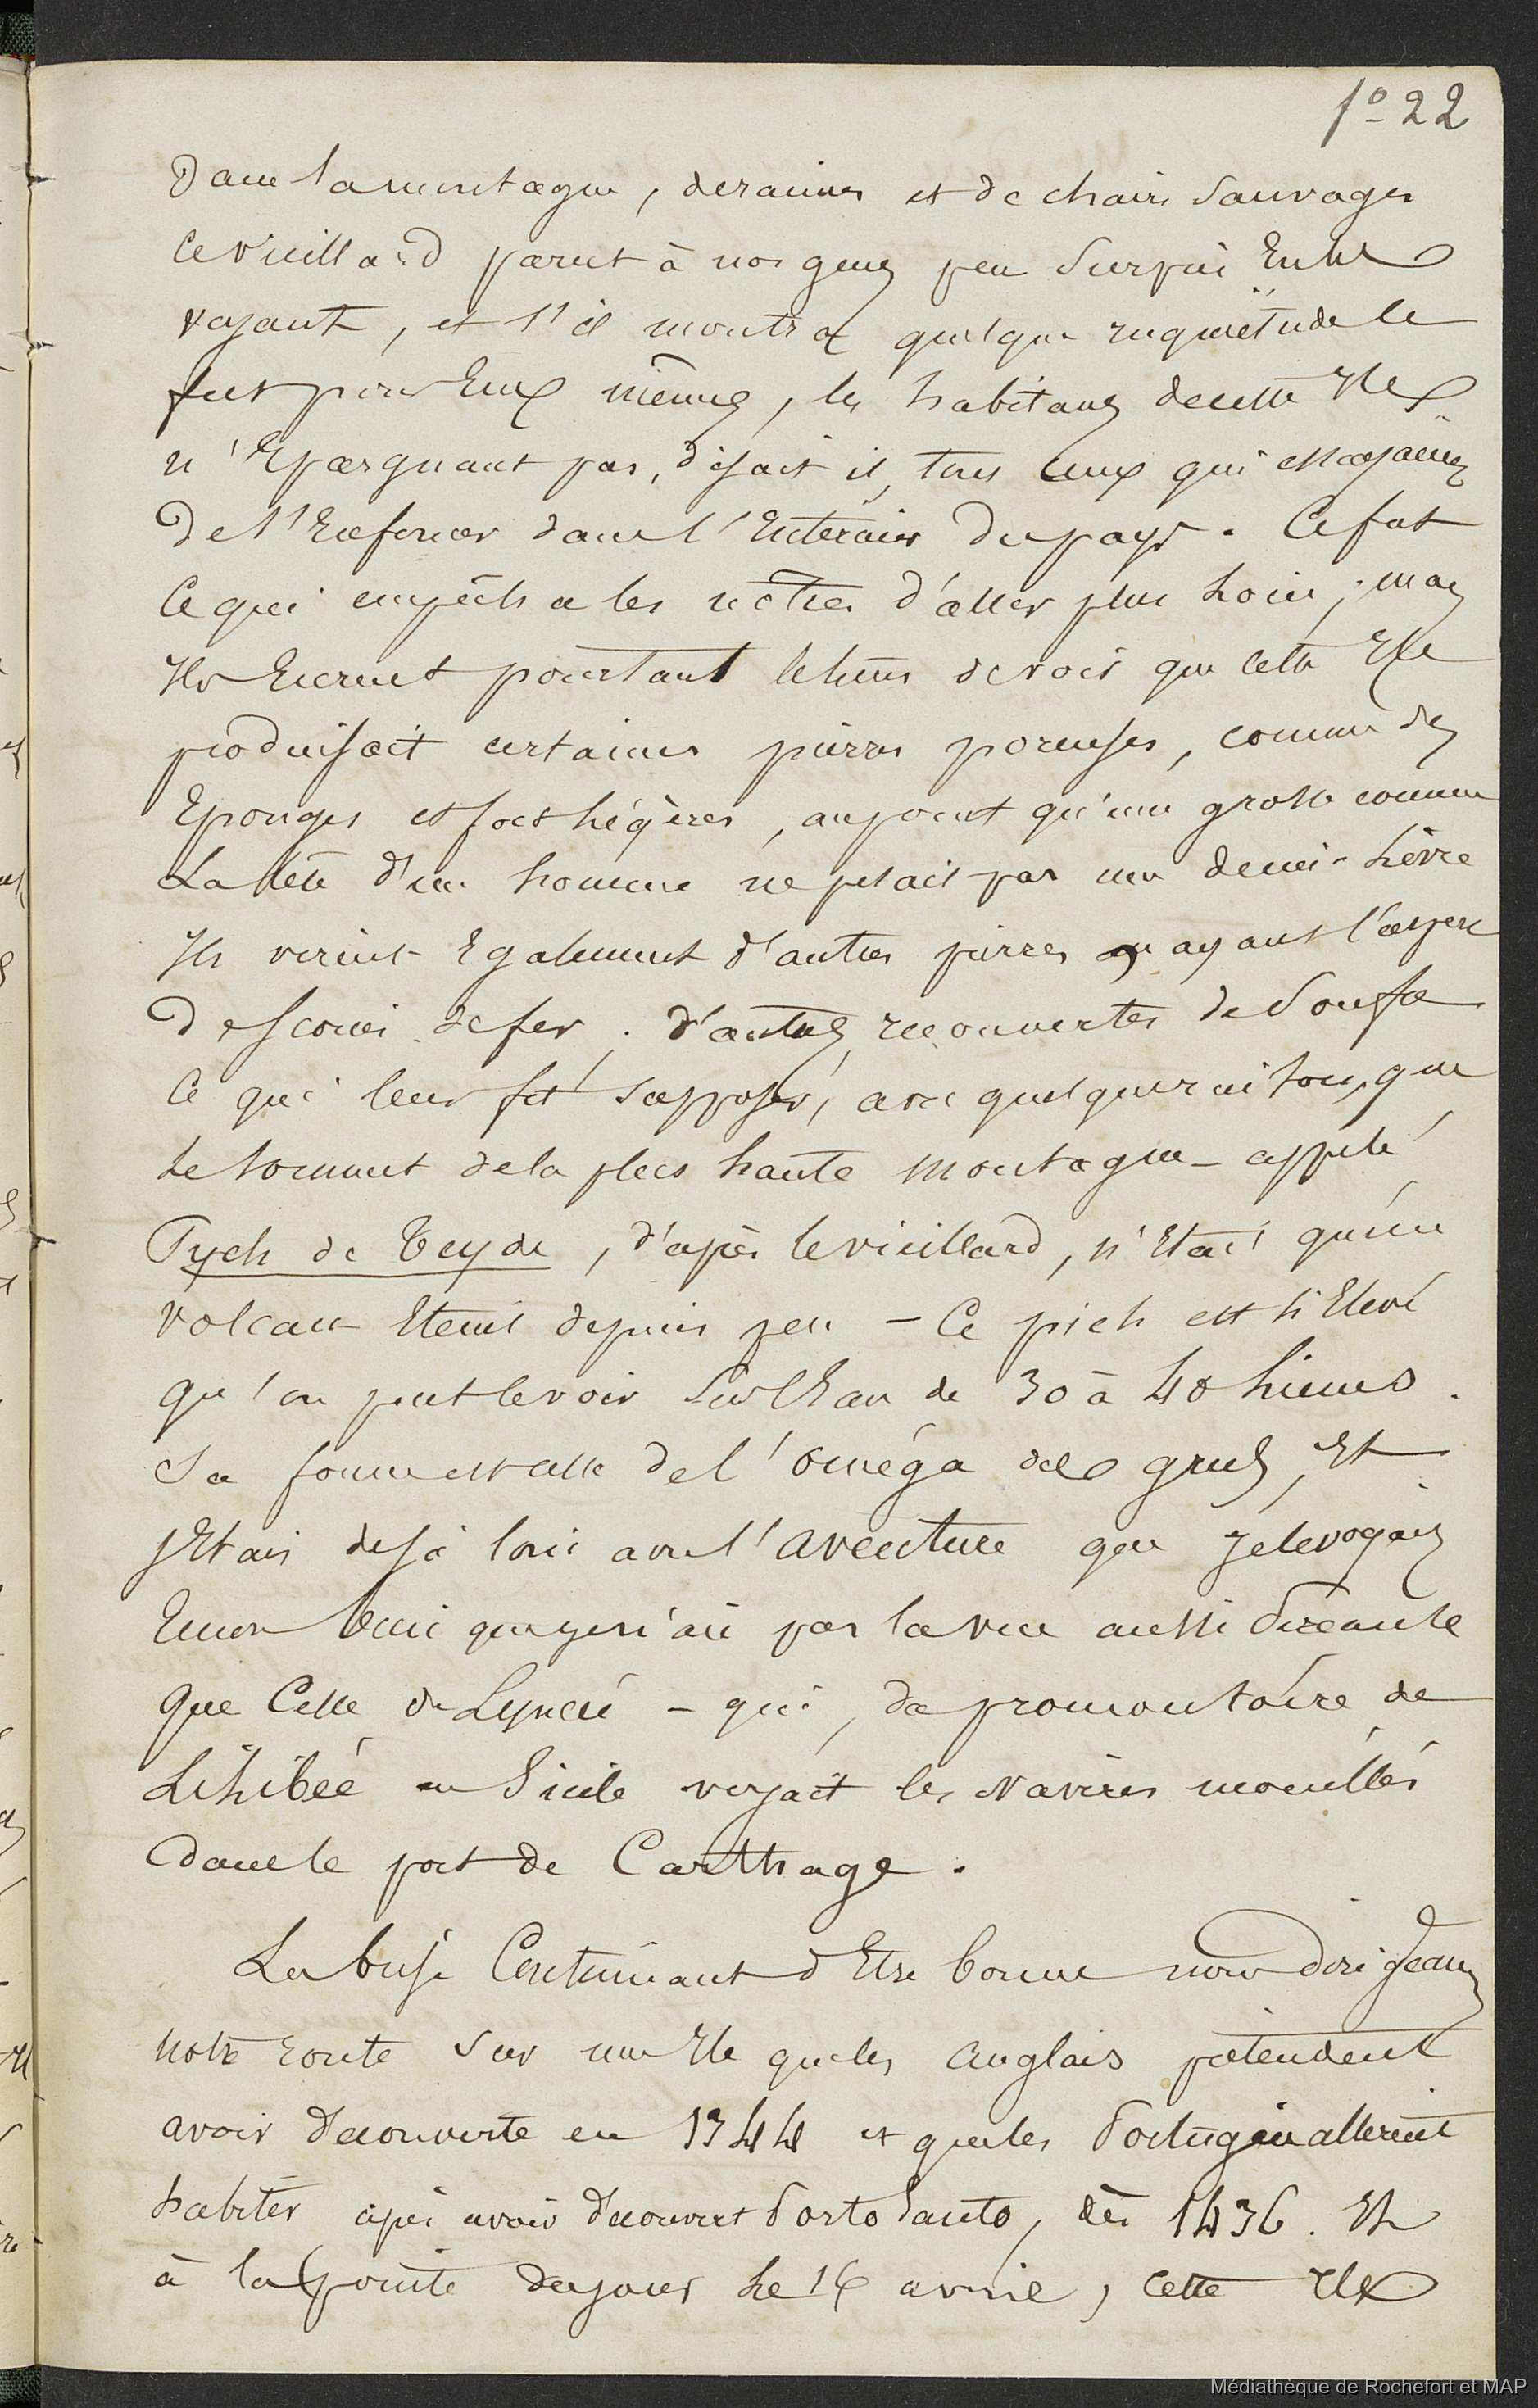 fo 22
Dans la montagne, de racines et de chairs sauvages
Ce vieillard parut à nos gens peu surpris En les
voyant, et s'il montra quelque inquiétude Ce
fut pour Eux mêmes, les habitans de cette Ile
n'Epargnant pas, disait il, tous ceux qui essayaient
De s'Enfoncer dans l'Interieur Du pays. Ce fut
Ce qui empêcha les nôtres d'aller plus loin; mais
Ils Eurent pourtant le tems de voir que cette Ile
produisait certaines pierres poreuses, comme des
Eponges et fort légères, au point qu'une grosse comme
La tête d'un homme ne pesait pas une demi-livre
Ils virent Egalement d'autres pierres ayant l'aspect
De scories de fer. d'autres recouvertes de Soufre
Ce qui leur fit supposer, avec quelque raison, que
Le sommet de la plus haute montagne - appelé
Pych de Teyde, d'après le vieillard, n'Etait qu'un
Volcan Eteint depuis peu - Ce pich est si Elevé
qu'on peut le voir Sur l'Eau de 30 à 40 lieues.
Sa forme est celle de l'Oméga des grecs, Et
j'Etais déjà loin avec l'aventure que je le voyais
Encore bien que je n'aie pas la vue aussi perçante
Que Celle de Lyncée - qui, du promontoire de
Lilibée en Sicile voyait les Navires mouillés
Dans le port de Carthage.
La brise Continuant d'Etre bonne nous dirigeames
notre route sur une Ile que les anglais prétendent
avoir Découverte en 1344 et que les Portugais allèrent
habiter après avoir Découvert Porto Santo, dès 1436. Et
à la pointe du jour Le 16 avril, cette Ile
Médiathèque de Rochefort et MAP